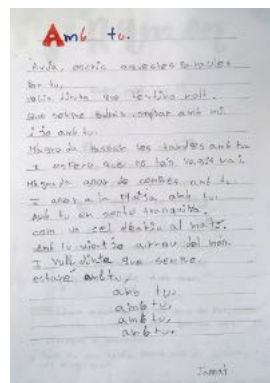 Amb tu.
Avia, escric aquestes paraules
Per tu,
volia dir-te que t'estimo molt.
Que sempre podràs comptar amb mi
i jo amb tu.
M'agrada passar les tardes amb tu
I espero que no te'n vagis mai.
M'agrada anar de compres amb tu
I anar a la Platja amb tu.
Amb tu em sento tranquil·la.
com un cel obert al matí.
Amb tu viatjo arreu del món.
I vull dir-te que sempre
estaré amb tu,
amb tu,
amb tu,
amb tu,
amb tu.